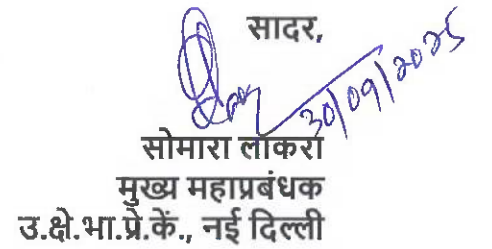 सादर,
30/09/2025
सोमारा लाकरा
मुख्य महाप्रबंधक
उ.क्षे.भा.प्रे.कें., नई दिल्ली